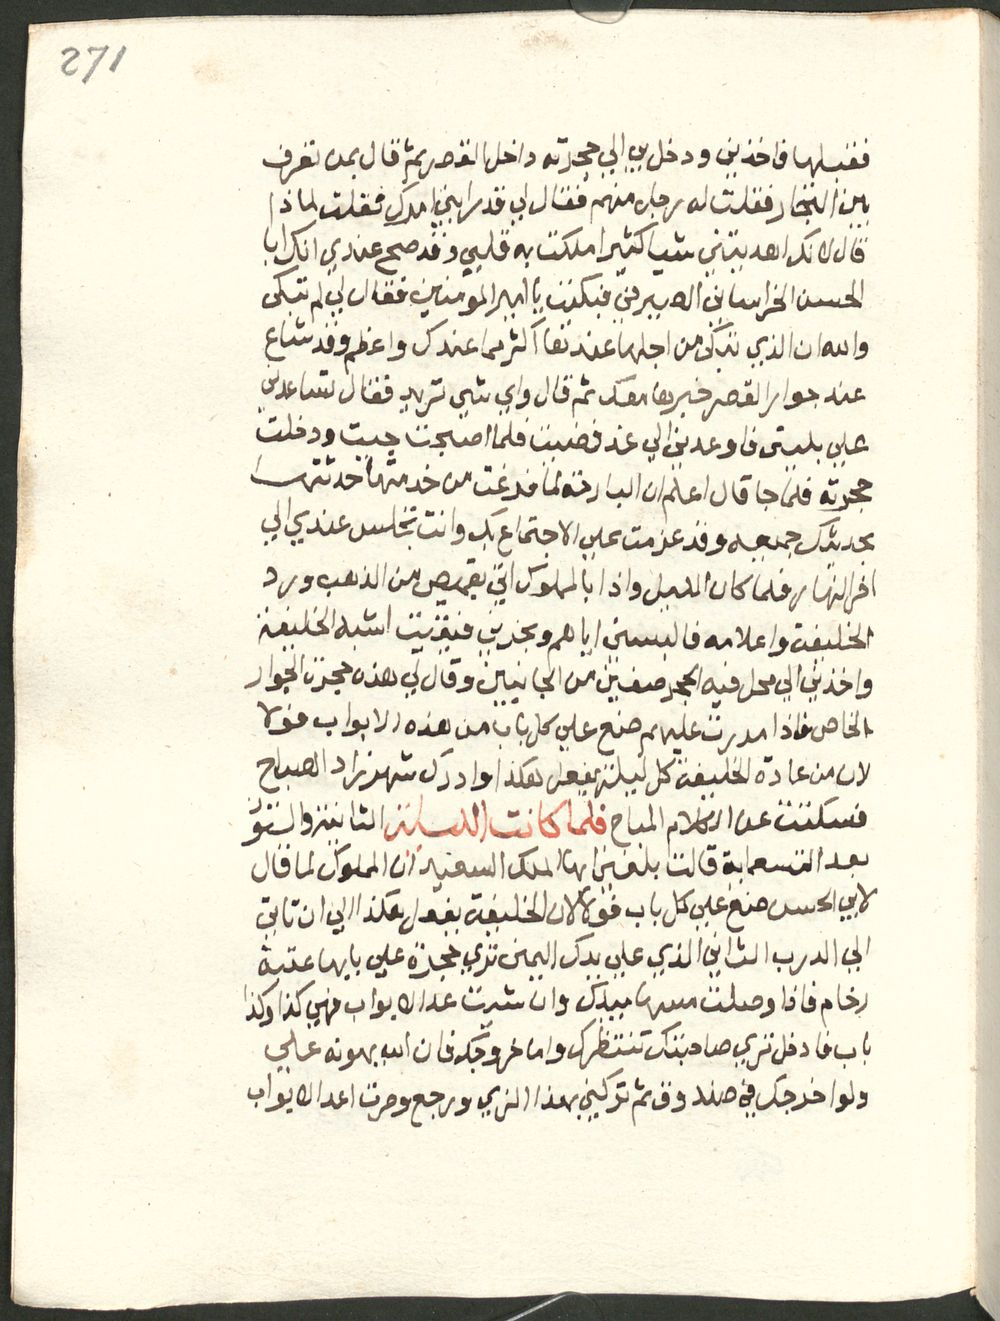 271
فقبلها فاخذني ودخل بي الي حجرته داخل القصر ثم قال بمن تعرف
بين التجار فقلت له رجل منهم فقال لي قد رابني امرك فقلت لماذا
قال لانك اهديتني شيا كثيرا ملكت به قلبي وقد صح عندي انك ابا
الحسن الخراساني الصيرفي فبكيت يا امير المومنين فقال لي لم تبكي
والله ان الذي تبكي من اجلها عندها اكثر مما عندك واعظم وقد شاع
عند جوار القصر خبرها معك ثم قال واي شي تريد فقال تساعدني
علي بليتي فاوعدني الي غد فمضيت فلما اصبحت جيت ودخلت
حجرته فلما جا قال اعلم ان البارحة لما فرغت من خدمتها حدثتها
بحديثك جميعه وقد عزمت علي الاجتماع بك وانت تجلس عندي الي
اخر النهار فلما كان الليل واذا بالمملوك اتي بقميص من الذهب وبرد
الخليفة واعلامه فالبسني اياهم وبخرني فبقيت اشبه الخليفة
واخذني الي محل فيه الحجر صفين من الجانبين وقال لي هذه حجرة الجوار
الخاص فاذا مررت عليهم ضع علي كل باب من هذه الابواب فولا
لان من عادة الخليفة كل ليلة يفعل هكذا وادرك شهرزاد الصباح
فسكتت عن الكلام المباح فلما كانت الليلة الثانية والستون
بعد التسعماية قالت بلغني ايها الملك السعيد ان المملوك لما قال
لابي الحسن ضع علي كل باب فولا لان الخليفة يفعل هكذا الي ان تاتي
الي الدرب الثاني الذي علي يدك اليمين تري حجرة علي بابها عتبة
رخام فاذا وصلت مسها بيدك وان شيت عد الابواب فهي كذا وكذا
باب فادخل تري صاحبتك تنتظرك واما خروجك فان الله يهونه علي
ولو اخرجك في صندوق ثم تركني بهذا الزي ورجع وصرت اعد الابواب